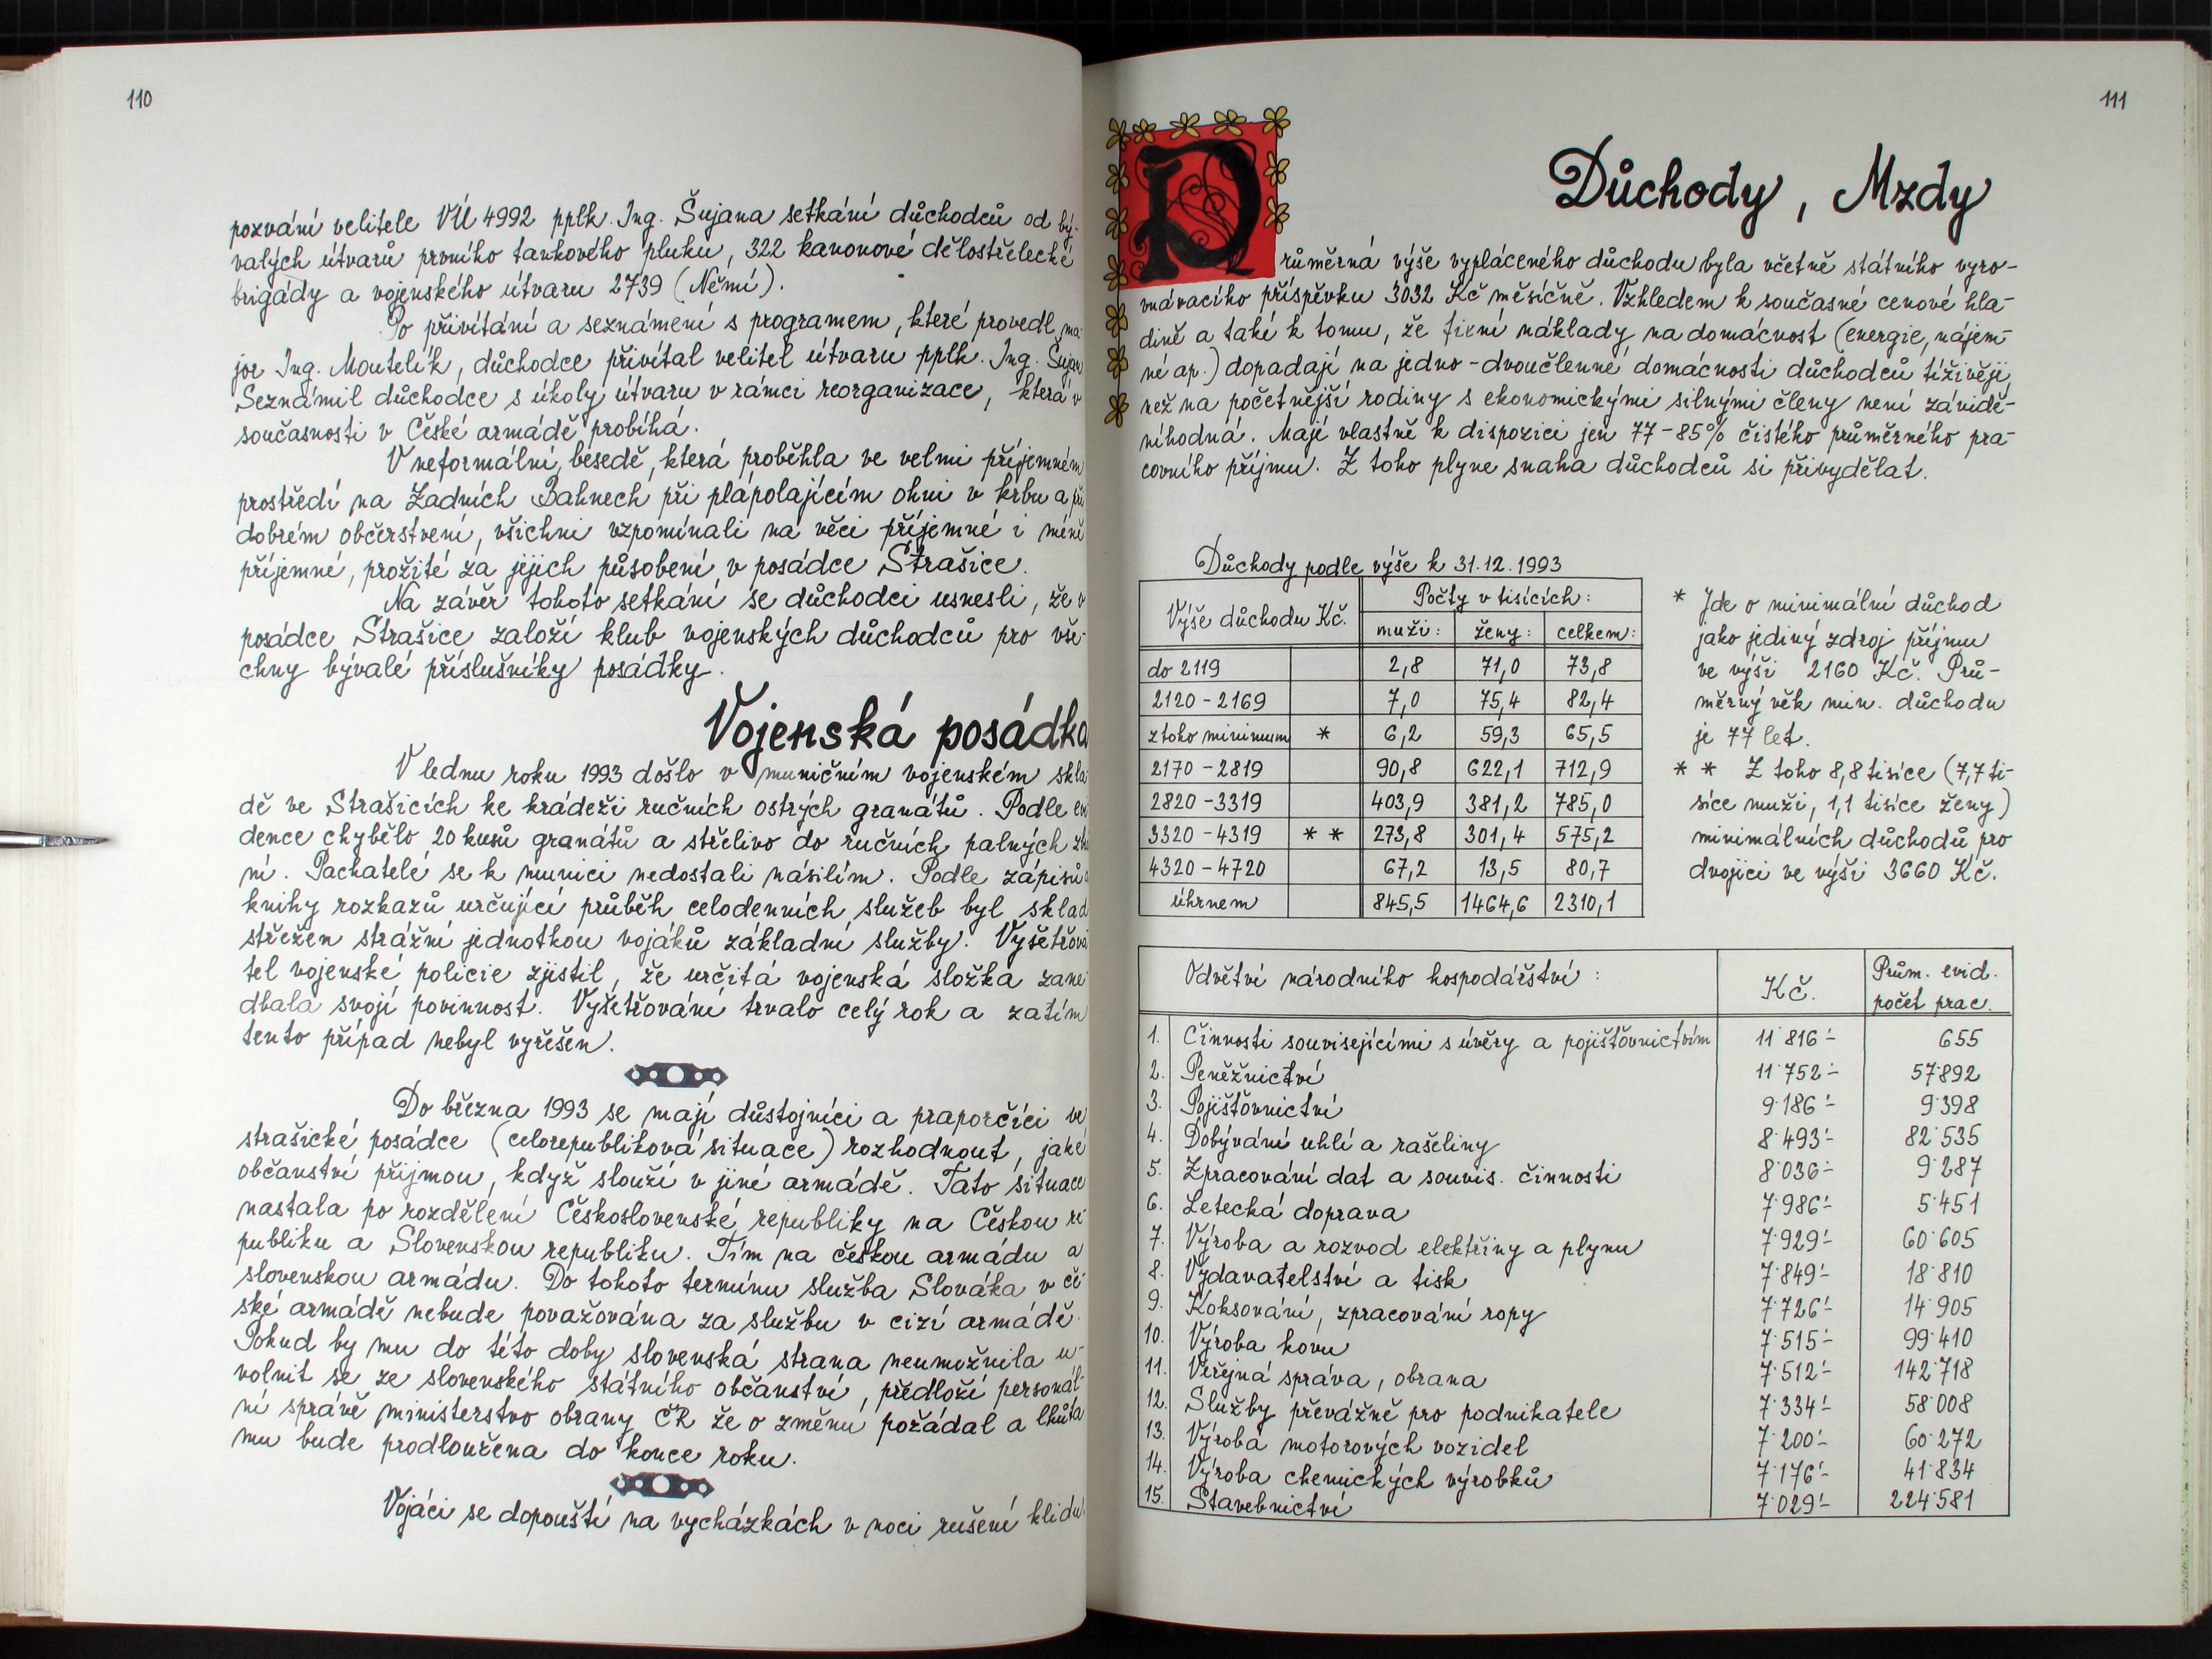 110
pozvání velitele VÚ 4992 pplk. Ing. Šujana setkání důchodců od bý-
valých útvarů prvního tankového pluku, 322 kanonové dělostřelecké
brigády a vojenského útvaru 2739 (Němí).
Po přivítání a seznámení s programem, které provedl ma-
jor Ing. Moutelík, důchodce přivítal velitel útvaru pplk. Ing. Šujan
Seznámil důchodce s úkoly útvaru v rámci reorganizace, která v
současnosti v České armádě probíhá.
V neformální besedě, která proběhla ve velmi příjemném
prostředí na Zadních Bahnech při plápolajícím ohni v krbu a při
dobrém občerstvení, všichni vzpomínali na věci příjemné i méně
příjemné, prožité za jejich působení v posádce Strašice.
Na závěr tohoto setkání se důchodci usnesli, že v
posádce Strašice založí klub vojenských důchodců pro vše-
chny bývalé příslušníky posádky.
Vojenská posádka
V lednu roku 1993 došlo v muničním vojenském skla-
dě ve Strašicích ke krádeži ručních ostrých granátů. Podle evi
dence chybělo 20 kusů granátů a střelivo do ručních palných zbra
ní. Pachatelé se k munici nedostali násilím. Podle zápisů
knihy rozkazů určující průběh celodenních služeb byl sklad
střežen strážní jednotkou vojáků základní služby. Vyšetřova
tel vojenské policie zjistil, že určitá vojenská složka zane
dbala svoji povinnost. Vyšetřování trvalo celý rok a zatím
tento případ nebyl vyřešen.
Do března 1993 se mají důstojníci a praporčíci ve
strašické posádce (celorepubliková situace) rozhodnout, jaké
občanství přijmou, když slouží v jiné armádě. Tato situace
nastala po rozdělení Československé republiky na Českou re-
publiku a Slovenskou republiku. Tím na českou armádu a
slovenskou armádu. Do tohoto termínu služba Slováka v če-
ské armádě nebude považována za službu v cizí armádě.
Pokud by mu do této doby slovenská strana neumožnila u-
volnit se ze slovenského státního občanství, předloží personál-
ní správě ministerstvo obrany ČR že o změnu požádal a lhůta
mu bude prodloužena do konce roku.
Vojáci se dopouští na vycházkách v noci rušení klidu
111
Důchody, Mzdy
Průměrná výše vypláceného důchodu byla včetně státního vyro-
vnávacího příspěvku 3032 Kč měsíčně. Vzhledem k současné cenové hla-
dině a také k tomu, že fixní náklady na domácnost (energie, nájem-
né ap.) dopadají na jedno-dvoučlenné domácnosti důchodců tíživěji
než na početnější rodiny s ekonomickými silnými členy není závidě-
níhodná. Mají vlastně k dispozici jen 77-85% čistého průměrného pra-
covního příjmu. Z toho plyne snaha důchodců si přivydělat.
Důchody podle výše k 31.12.1993
Výše důchodu Kč. Počty v tisících:
muži: ženy: celkem:
do 2119 2,8 71,0 73,8
2120-2169 7,0 75,4 82,4
z toho minimum * 6,2 59,3 65,5
2170-2819 90,8 622,1 712,9
2820-3319 403,9 381,2 785,0
3320-4319 * * 273,8 301,4 575,2
4320-4720 67,2 13,5 80,7
úhrnem 845,5 1464,6 2310,1
* Jde o minimální důchod
jako jediný zdroj příjmu
ve výši 2160 Kč. Prů-
měrný věk min. důchodu
je 77 let.
* * Z toho 8,8 tisíce (7,7 ti-
síce muži, 1,1 tisíce ženy)
minimálních důchodů pro
dvojici ve výši 3660 Kč.
Odvětví národního hospodářství: Kč. Prům. evid.
počet prac.
1. Činnosti souvisejícími s úvěry a pojišťovnictvím 11˙816˙- 655
2. Peněžnictví 11˙752˙- 57˙892
3. Pojišťovnictví 9˙186˙- 9˙398
4. Dobývání uhlí a rašeliny 8˙493˙- 82˙535
5. Zpracování dat a souvis. činnosti 8˙036˙- 9˙287
6. Letecká doprava 7˙986˙- 5˙451
7. Výroba a rozvod elektřiny a plynu 7˙929˙- 60˙605
8. Vydavatelství a tisk 7˙849˙- 18˙810
9. Koksování, zpracování ropy 7˙726˙- 14˙905
10. Výroba kovu 7˙515˙- 99˙410
11. Veřejná správa, obrana 7˙512˙- 142˙718
12. Služby převážně pro podnikatele 7˙334˙- 58˙008
13. Výroba motorových vozidel 7˙200˙- 60˙272
14. Výroba chemických výrobků 7˙176˙- 41˙834
15. Stavebnictví 7˙029˙- 224˙581